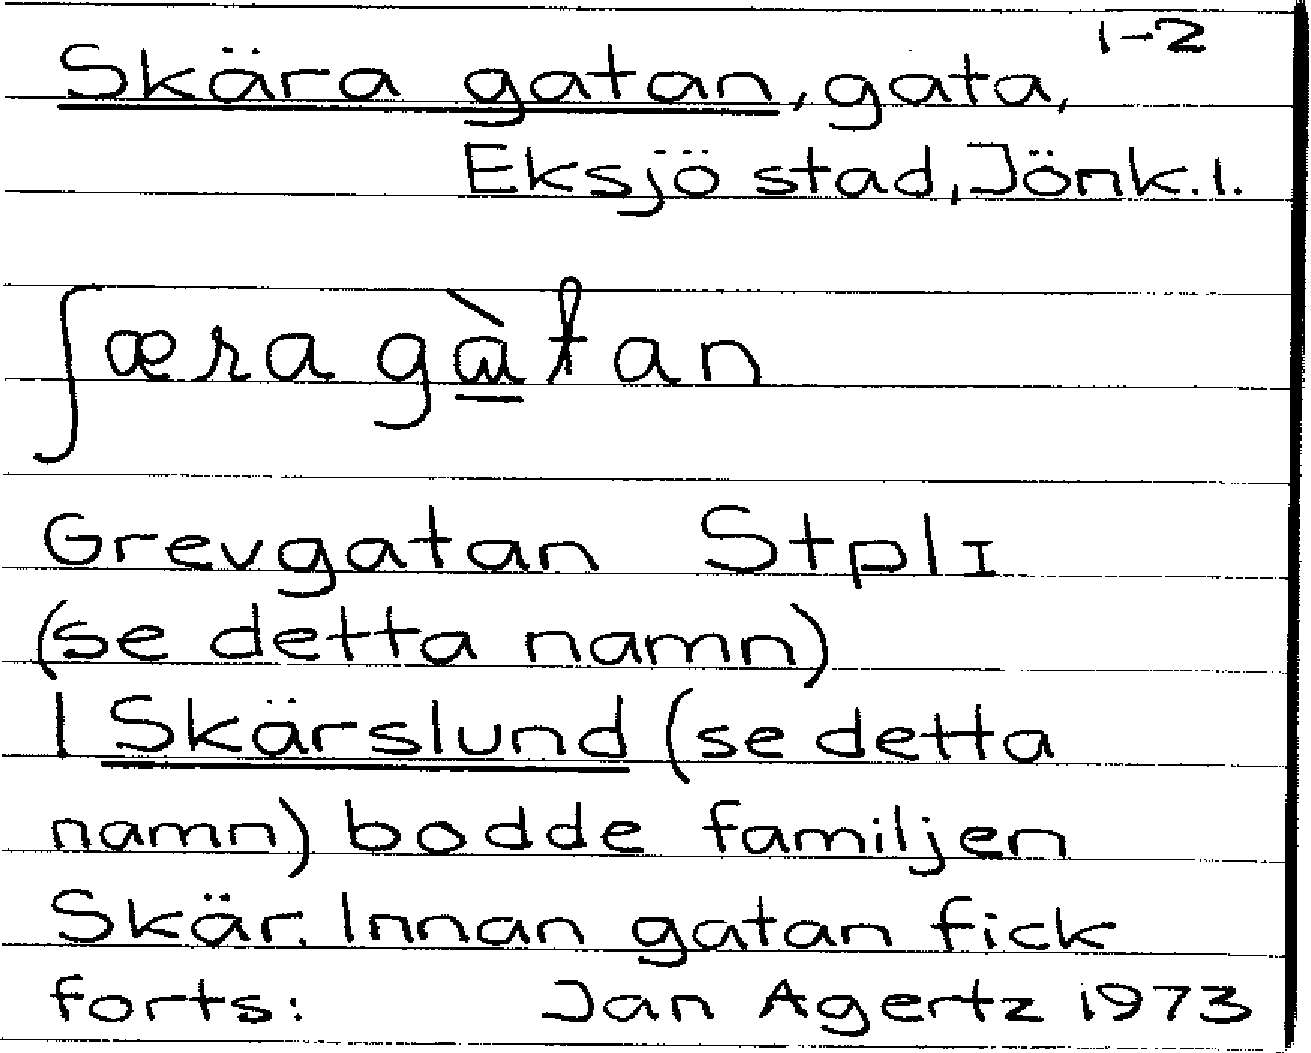 1-2
Skära gatan, gata,
Eksjö stad, Jönk.l.
ʃæra gàtan
Grevgatan Stpl I
(se detta namn)
I Skärslund (se detta
namn) bodde familjen
Skär. Innan gatan fick
forts: Jan Agertz 1973